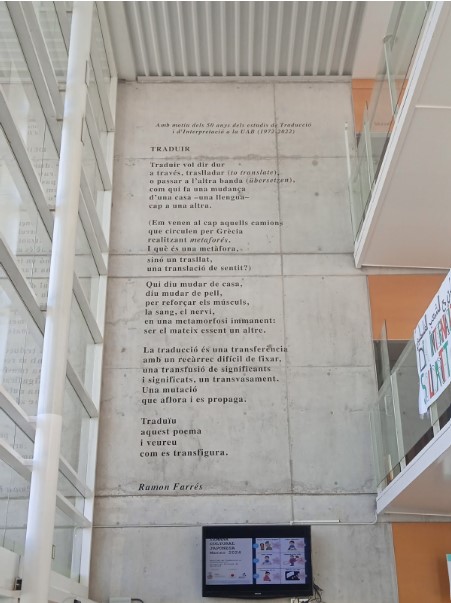 Amb motiu dels 50 anys dels estudis de Traducció
i d'Interpretació a la UAB (1972-2022)
TRADUIR
Traduir vol dir dur
a través, traslladar (to translate),
o passar a l'altra banda (übersetzen),
com qui fa una mudança
d'una casa –una llengua–
cap a una altra.
(Em venen al cap aquells camions
que circulen per Grècia
realitzant metaforés.
I què és una metàfora,
sinó un trasllat,
una translació de sentit?)
Qui diu mudar de casa,
diu mudar de pell,
per reforçar els músculs,
la sang, el nervi,
en una metamorfosi immanent:
ser el mateix essent un altre.
La traducció és una transferència
amb un recàrrec difícil de fixar,
una transfusió de significants
i significats, un transvasament.
Una mutació
que aflora i es propaga.
Traduïu
aquest poema
i veureu
com es transfigura.
Ramon Farrés
CULTURAL